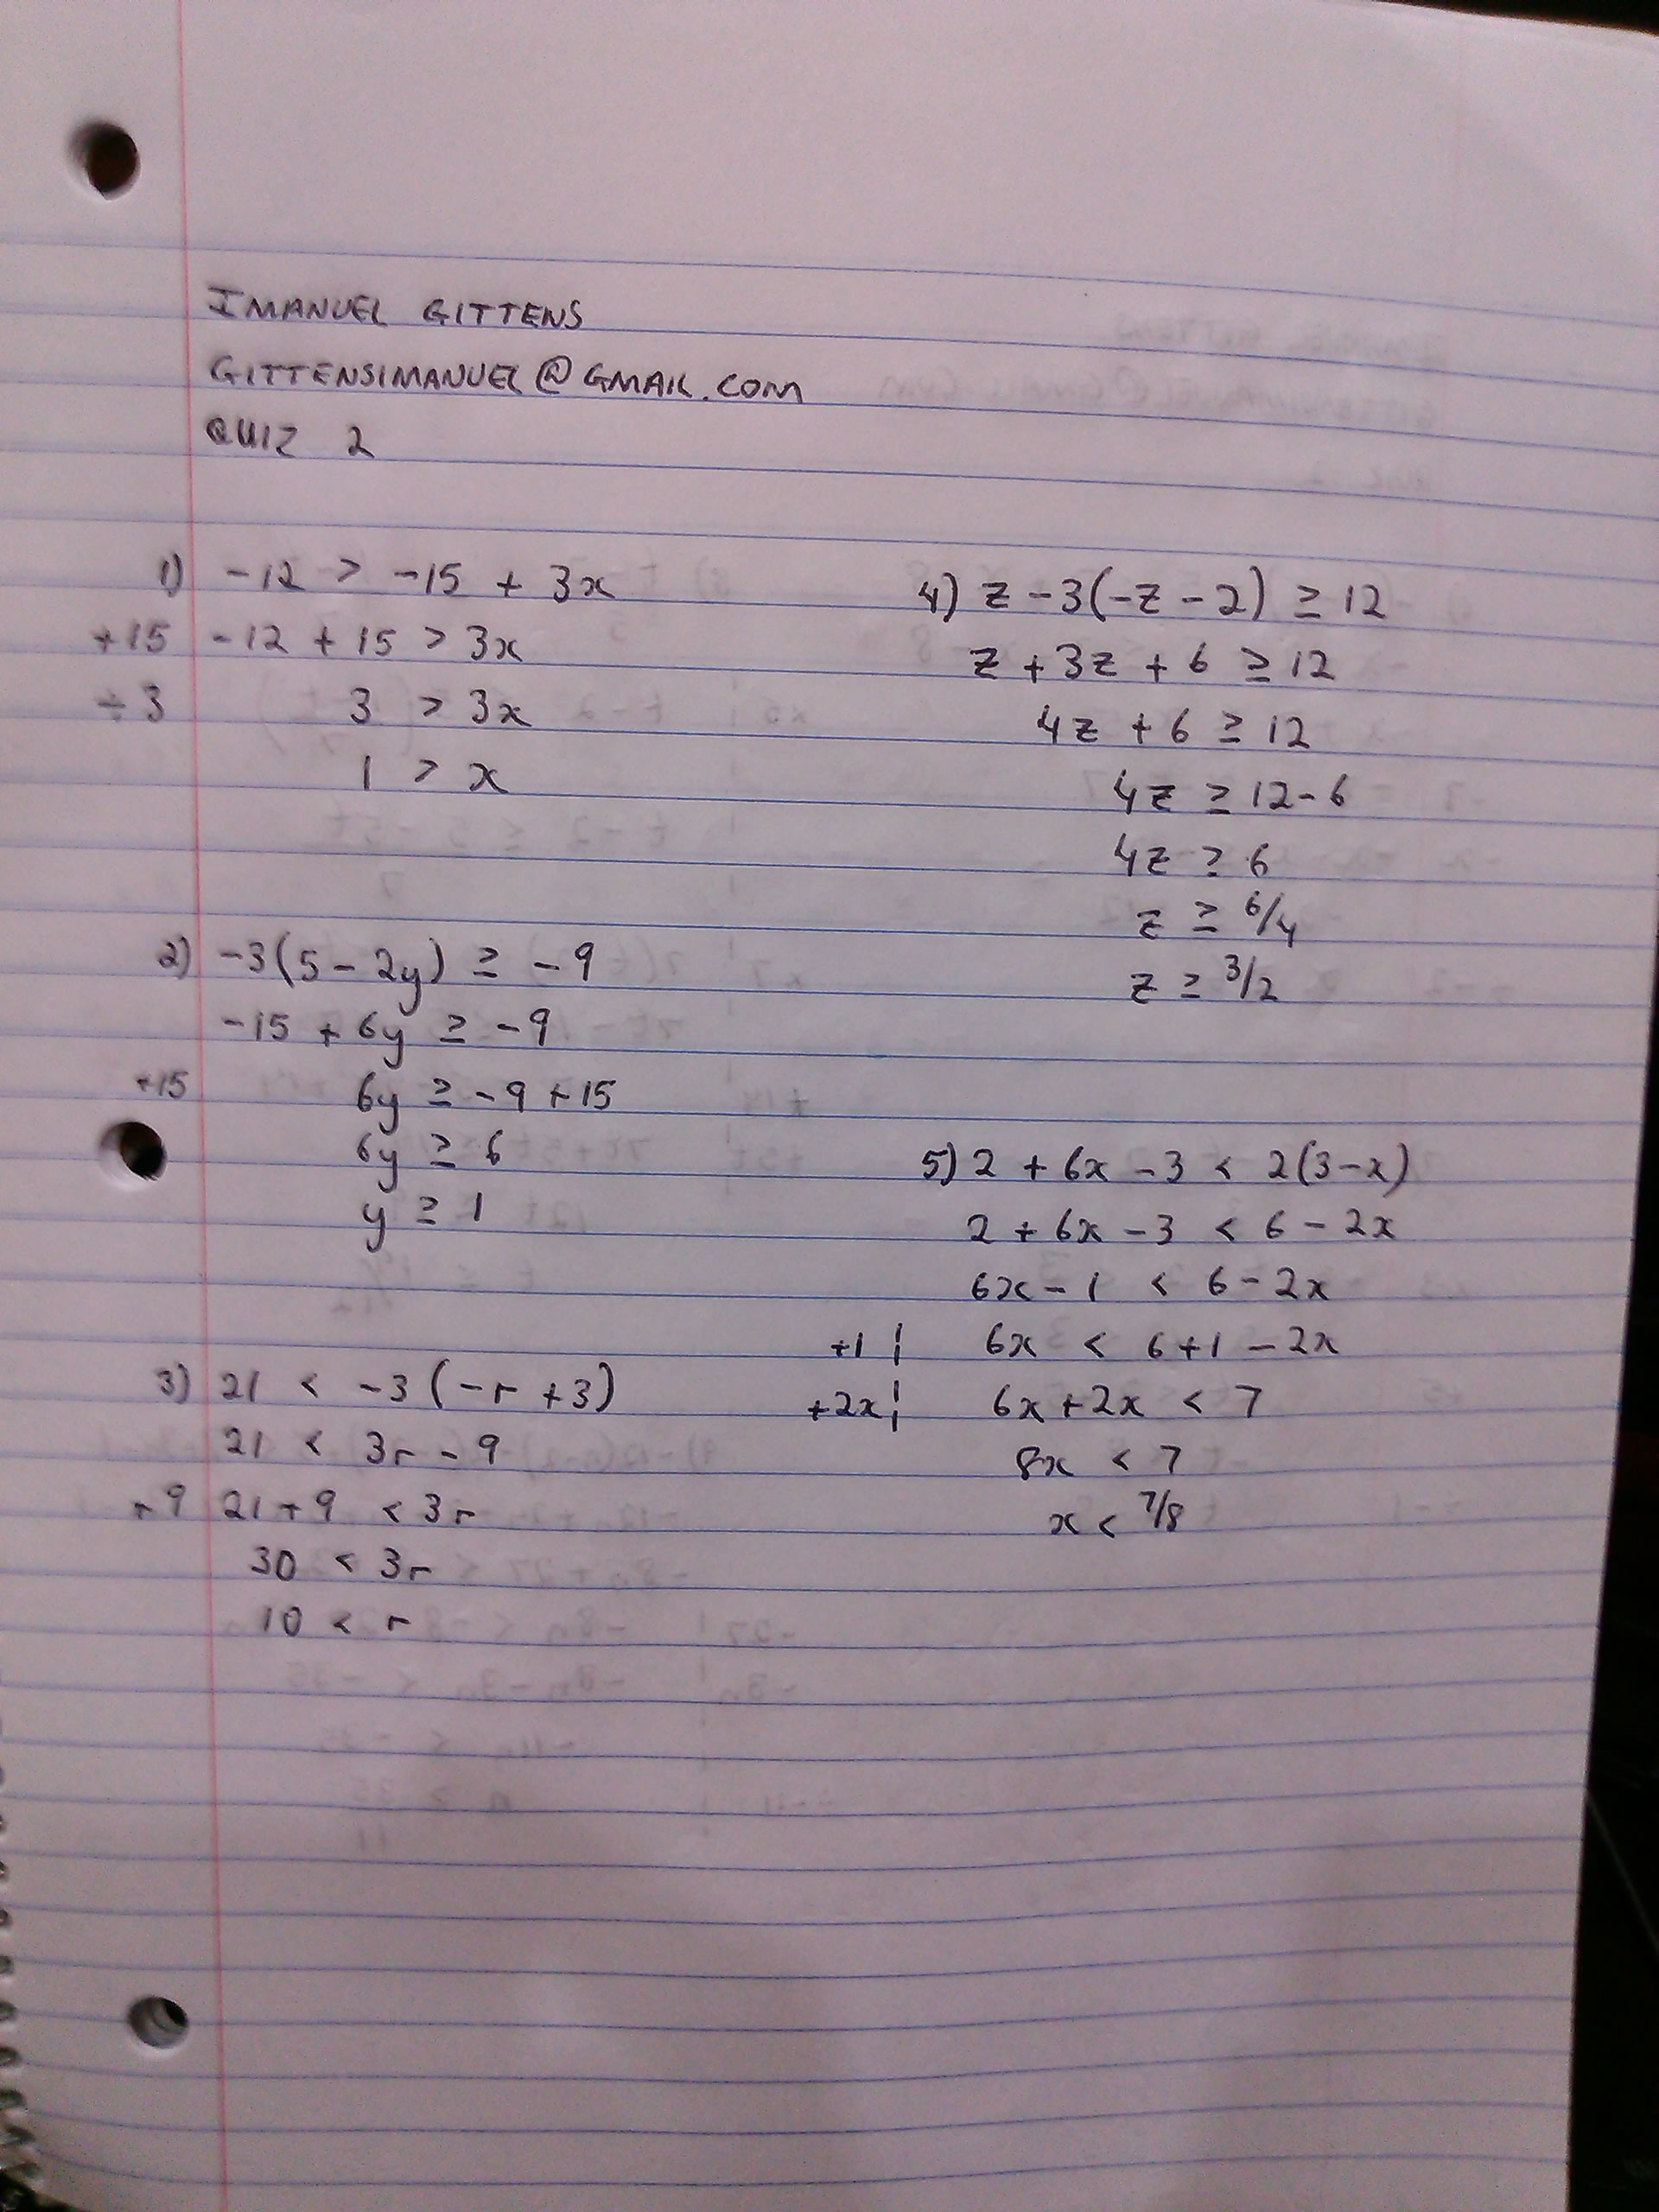 IMANUEL GITTENS
GITTENSIMANUEL@GMAIL.COM
QUIZ 2
1) -12 > -15 + 3x
+15 -12 + 15 > 3x
÷3 3 > 3x
1 > x
2) -3(5 - 2y) ≥ -9
-15 + 6y ≥ -9
+15 6y ≥ -9 + 15
6y ≥ 6
y ≥ 1
3) 21 < -3(-r + 3)
21 < 3r - 9
+9 21 + 9 < 3r
30 < 3r
10 < r
4) z - 3(-z - 2) ≥ 12
z + 3z + 6 ≥ 12
4z + 6 ≥ 12
4z ≥ 12 - 6
4z ≥ 6
z ≥ 6/4
z ≥ 3/2
5) 2 + 6x - 3 < 2(3 - x)
2 + 6x - 3 < 6 - 2x
6x - 1 < 6 - 2x
+1 ¦ 6x < 6 + 1 - 2x
+2x ¦ 6x + 2x < 7
8x < 7
x < 7/8